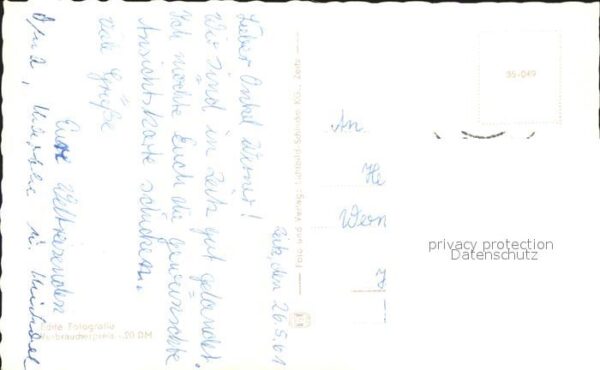 Zeitz, den 26.5.61
Lieber Onkel Werner!
Wir sind in Zeitz gut gelandet.
Ich möchte Euch die gewünschte
Ansichtskarte schicken.
Viele Grüße
Eure Weltreisenden
Oma, u. Michael
An
He
Wern
Z
35-049
Foto und Verlag: Lichtbild-Schincke KG., Zeitz
Echte Fotografie
Verbraucherpreis -.20 DM
privacy protection
Datenschutz